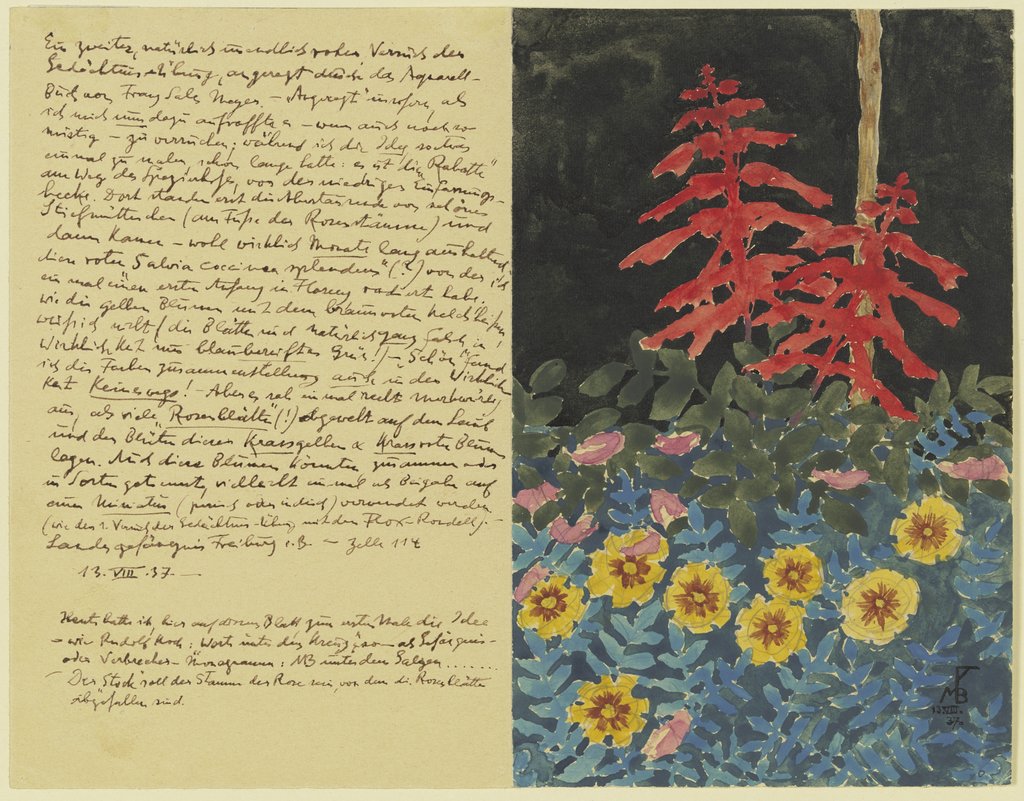 Ein zweiter, natürlich unendlich roher Versuch der
Gedächtnisübung, angeregt durch das Aquarell-
Buch von Franz Sales Meyer. – "Angeregt" insofern, als
ich mich nun dazu aufraffte – wenn auch noch so
mistig – zu versuchen; während ich die Idee so etwas
einmal zu malen, schon lange hatte: es ist die "Rabatte"
am Weg des Spazierhofes, vor der niedrigen Einfassungs-
hecke. Dort standen erst die schönen
Stiefmütterchen (am Fuße der Rosenstämme) und
dann kamen – wohl wirklich Monate lang aushaltend
diese roten "Salvia coccinea splendens" (?) von der ich
einmal einen ersten Anfang in Florenz radiert habe.
wie die gelben Blumen mit dem braunroten Kelch heißen
weiß ich nicht (die Blätter sind natürlich ganz falsch, in
Wirklichkeit ein blaubereiftes Grün!) – "Schön" fand
ich die Farbenzusammenstellung auch in der Wirklich-
keit keineswegs! – Aber es sah einmal recht merkwürdig
aus, als viele "Rosenblätter" (!) abgewelkt auf dem Laub
und den Blüten dieser krassgelben & krassroten Blumen
lagen. Und diese Blumen könnten zusammen oder
in Sorten getrennt, vielleicht einmal als Beigabe auf
einer Miniatur (persisch oder indisch) verwendet werden.
(wie der 1. Versuch der Gedächtnis-Übung mit dem Flox-Rondell).
Landesgefängnis Freiburg i.B. – Zelle 114
13. VIII. 37. –
Heute hatte ich hier auf diesem Blatt zum ersten Male die Idee
– wie Rudolf Koch: Wort unter dem Kreuz – als Gefängnis-
oder Verbrecher-Monogramm: MB unter dem Galgen .......
– Der Stock soll der Stamm der Rose sein, von dem die Rosenblätter
abgefallen sind.
MB
13.VIII.
37.